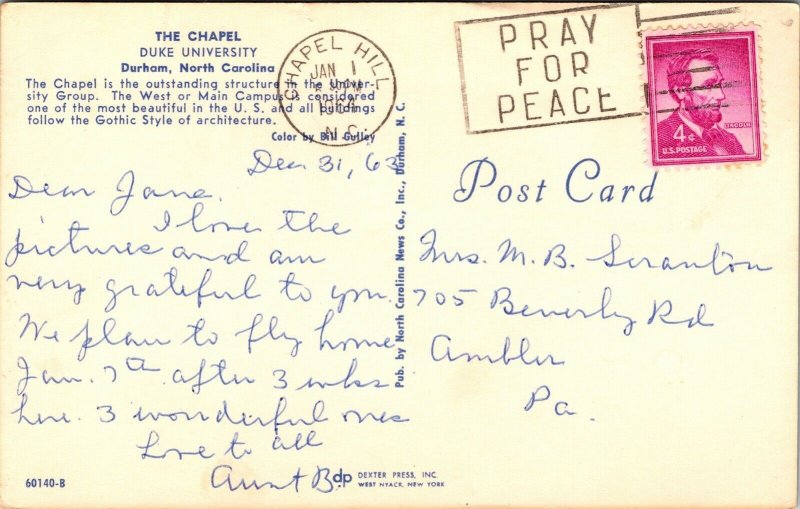 THE CHAPEL
DUKE UNIVERSITY
Durham, North Carolina
The Chapel is the outstanding structure in the Univer-
sity Group. The West or Main Campus is considered
one of the most beautiful in the U. S. and all buildings
follow the Gothic Style of architecture.
Color by Bill Gulley
CHAPEL HILL
JAN 1
N.C.
PRAY
FOR
PEACE
LINCOLN
4¢
U.S. POSTAGE
Dec 31, 63
Dear Jane,
I love the
pictures and am
very grateful to you.
We plan to fly home
Jan. 7th after 3 wks
here. 3 wonderful ones
Love to all
Aunt B.
Pub. by North Carolina News Co., Inc., Durham, N. C.
Post Card
Mrs. M. B. Scranton
705 Beverly Rd
Ambler
Pa.
60140-B
dp DEXTER PRESS, INC.
WEST NYACK, NEW YORK